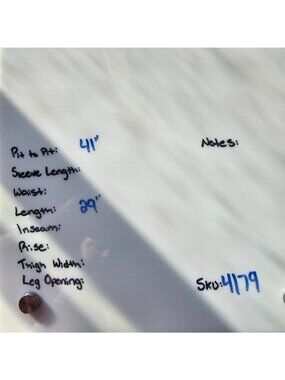 Pit to Pit: 41"
Notes:
Sleeve Length:
Waist:
Length: 29"
Inseam:
Rise:
Thigh Width:
Leg Opening:
SKU: 4179